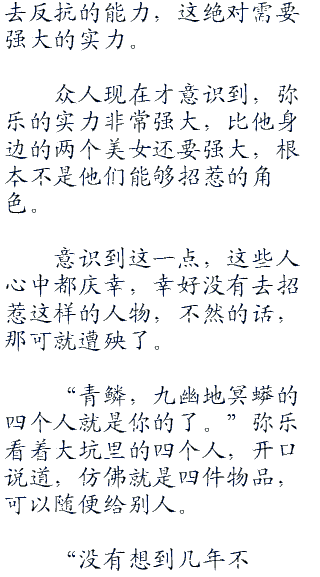 去反抗的能力，这绝对需要
强大的实力。
众人现在才意识到，弥
乐的实力非常强大，比他身
边的两个美女还要强大，根
本不是他们能够招惹的角
色。
意识到这一点，这些人
心中都庆幸，幸好没有去招
惹这样的人物，不然的话，
那可就遭殃了。
“青鳞，九幽地冥蟒的
四个人就是你的了。”弥乐
看着大坑里的四个人，开口
说道，仿佛就是四件物品，
可以随便给别人。
“没有想到几年不